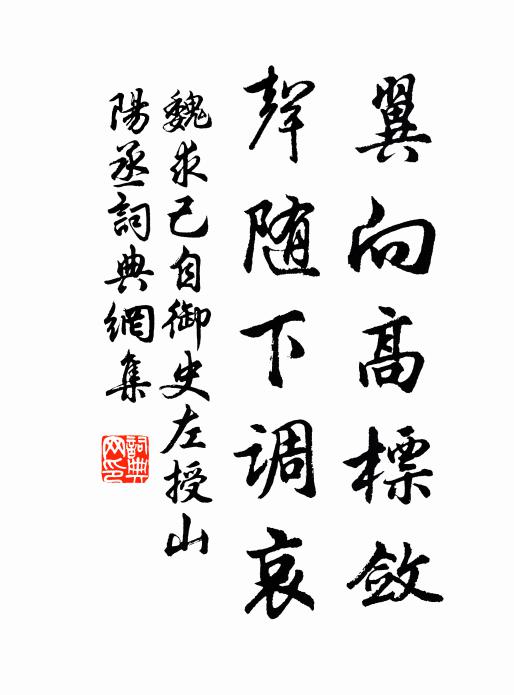 翼向高標斂
聲随下調哀
魏求己自御史左授山
陽丞詞典網集
詞典网印